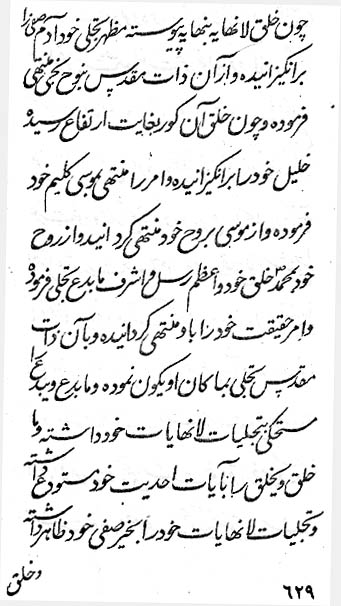 چون خلق لانهایه بنهایه پیوسته مظهر تجلی خود آدم صفی را
برانگیزانیده و از آن ذات مقدس نبوح نجی منتهی
فرموده و چون خلق آن کور بغایت ارتفاع رسیده
خلیل خود را برانگیزانیده و امر را منتهی بموسی کلیم خود
فرموده و از موسی بروح خود منتهی گردانیده و از روح
خود بمحمد خلق خود و اعظم رسل و اشرف مابدع تجلی فرموده
و امر حقیقت خود را باو منتهی گردانیده و بآن ذات
مقدس تجلی بما کان او یکون نموده و مابدع و یبدع
مستحکی بتجلیات لانهایات خود داشته و ما
خلق و یخلق را بآیات احدیت خود مستودع داشته
و تجلیات لانهایات خود را بخیر صفی خود ظاهر داشته
و خلق
۶۲۹